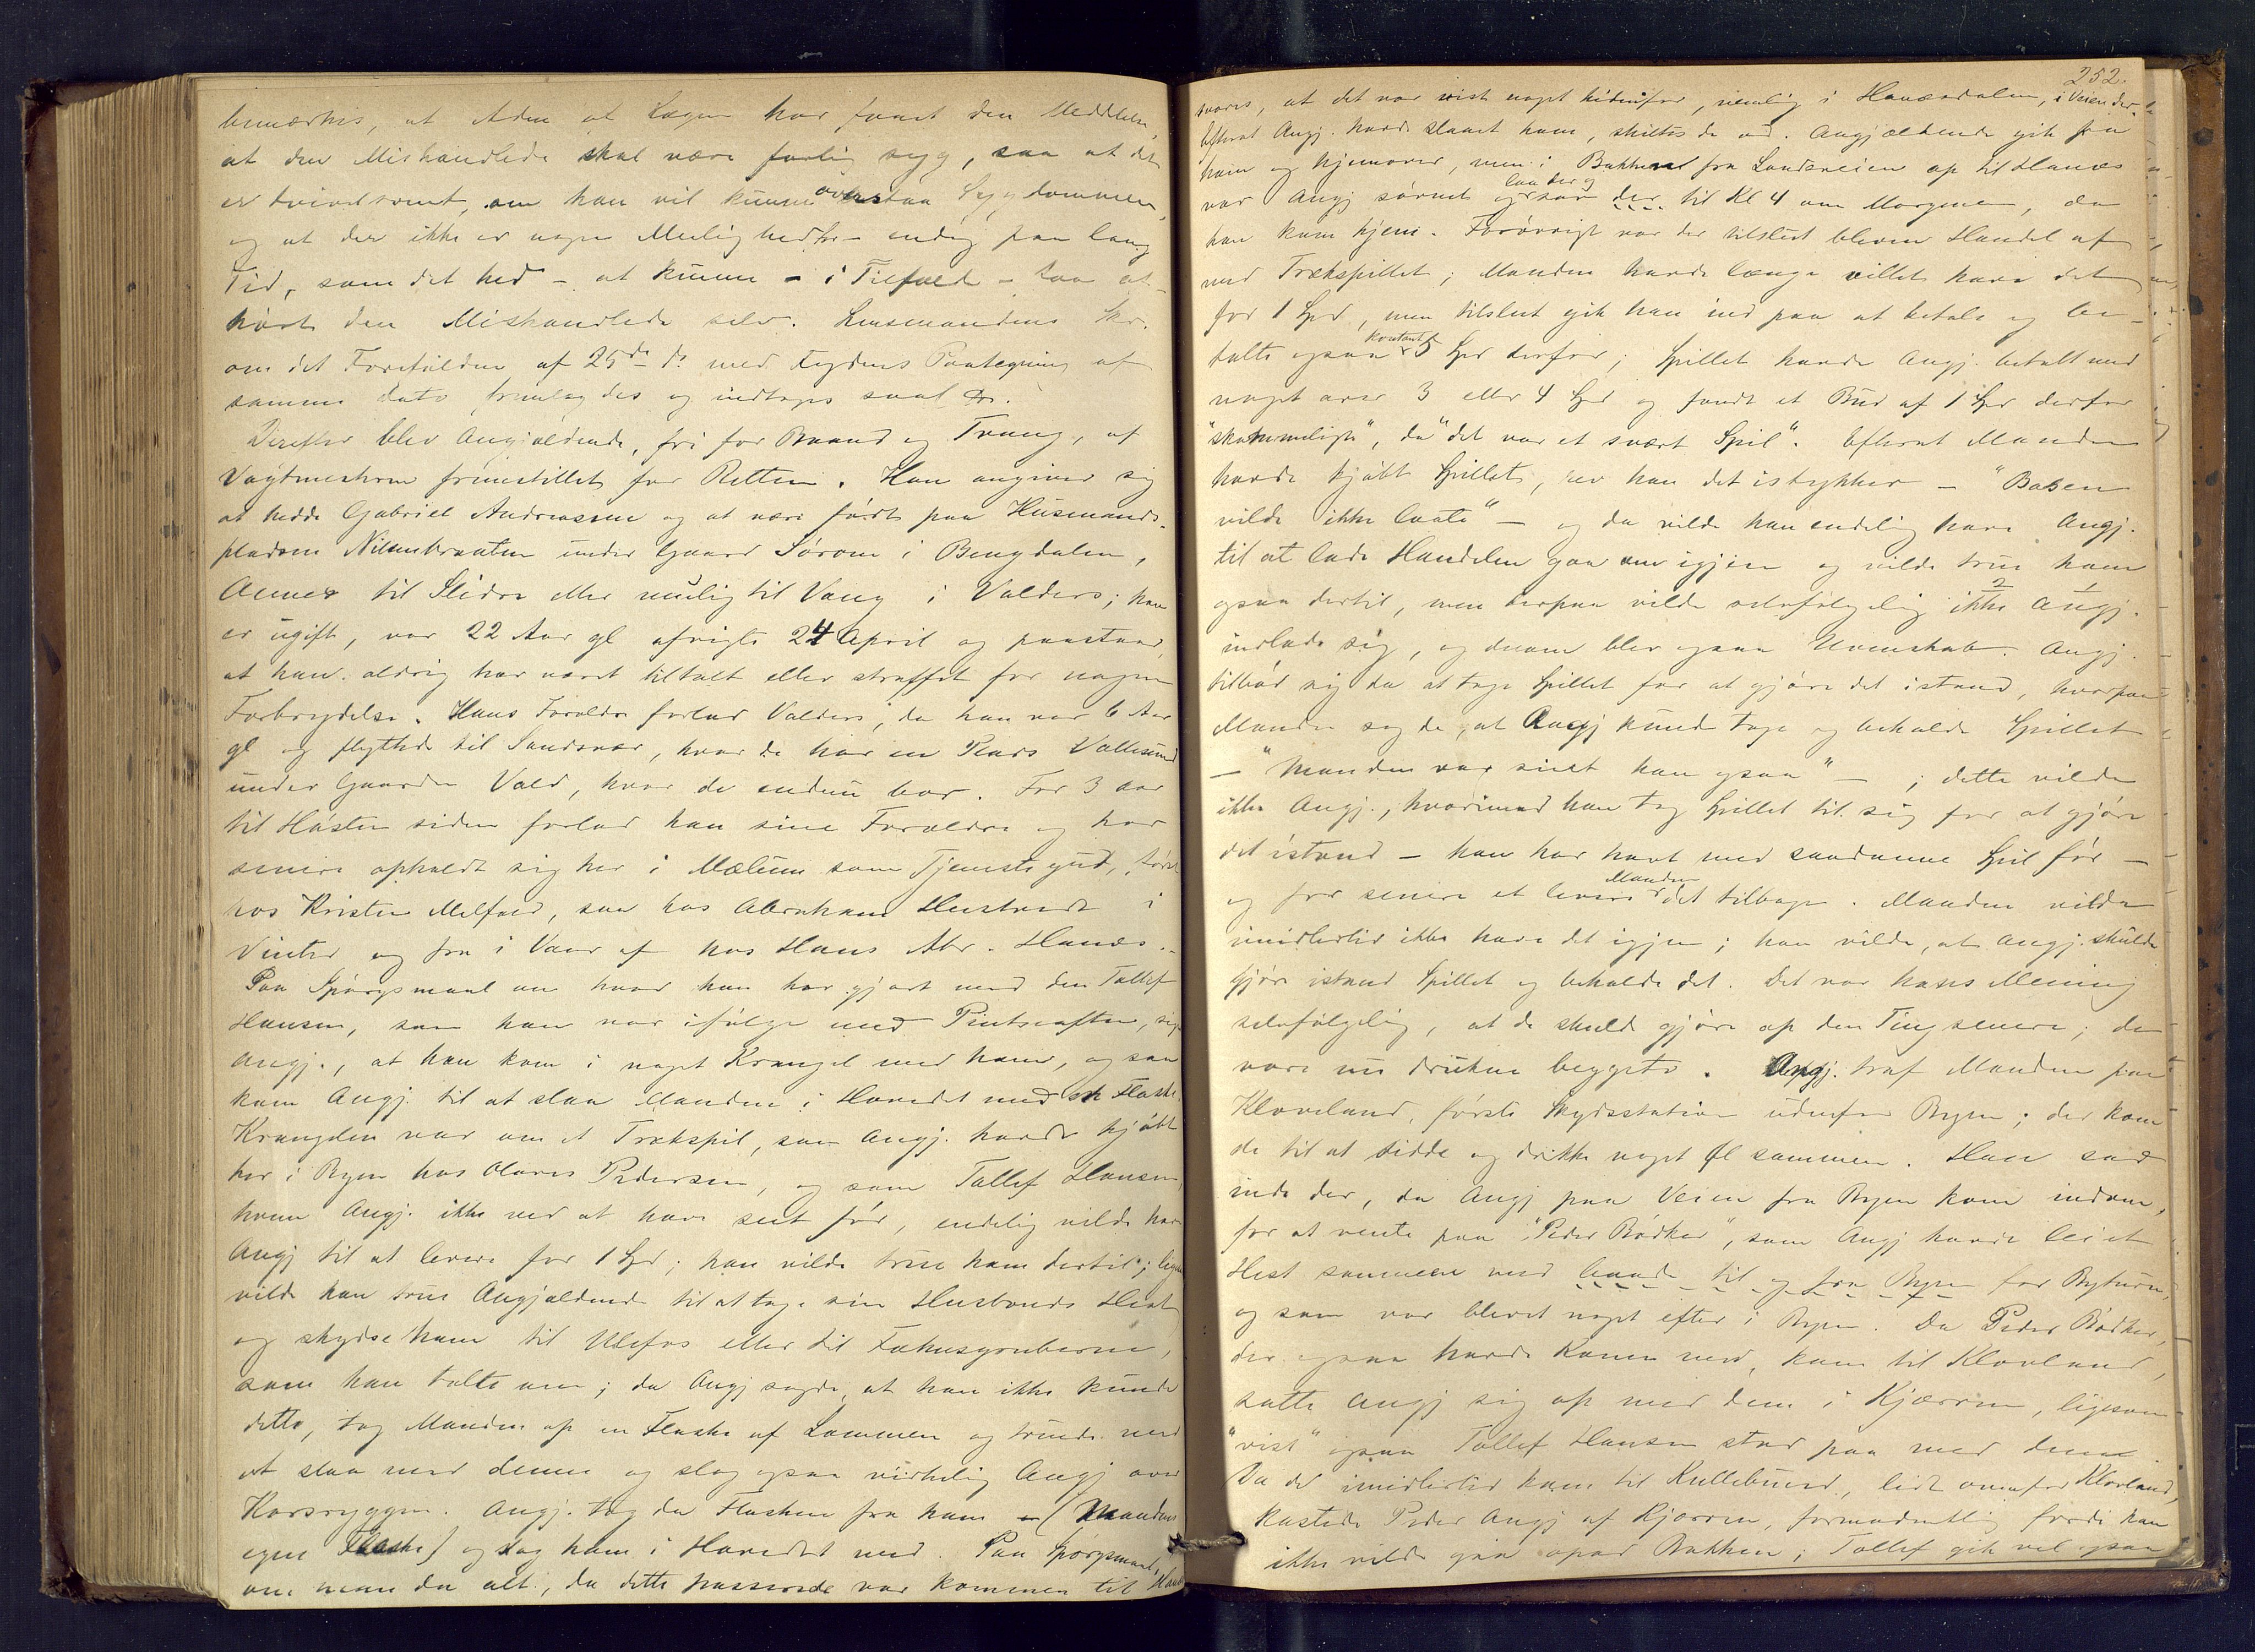 bemærkes, at Adm af Lægen har faaet den Meddelelse,
at den Mishandlede skal være farlig syg, saa at det
er tvivlsomt, om han vil kunne overstaa Sygdommen,
og at der ikke er nogen Mulighed for endog paa lang
Tid, som det hed – at kunne – i Tilfælde – faa af-
hørt den Mishandlede selv. Lensmandens Skr.
om det Forefaldne af 25de ds. med Fogdens Paategning af
samme Dato fremlagdes og indtages saal.
Derefter blev Angjældende, fri for Baand og Tvang, af
Vagtmesteren fremstillet for Retten. Han angiver sig
at hedde Gabriel Andreassen og at være født paa Husmands-
pladsen Nilsenbraaten under Gaard Sørom i Bengdalen,
Annex til Slidre eller mulig til Vang i Valders; han
er ugift, var 22 Aar gl afvigte 24 April og paastaar,
at han aldrig har været tiltalt eller straffet for nogen
Forbrydelse. Hans Forældre forlod Valders, da han var 6 Aar
gl og flyttede til Sandsvær, hvor de har en Plads Vollesund
under Gaarden Vold, hvor de endnu bor. For 3 Aar
til Høsten siden forlod han sine Forældre og har
senere opholdt sig her i Mælum som Tjenestegut, først
hos Kristen Melfald, saa hos Abraham Hestvedt i
Vinter og fra i Vaar af hos Hans Abr. Hanæs.
Paa Spørgsmaal om hvad han har gjort med den Tollef
Hansen, som han var ifølge med Pintseaften, siger
Angj., at han kom i noget Krangel med ham, og saa
kom Angj. til at slaa Manden i Hovedet med en Flaske.
Krangelen var om et Trækspil, som Angj. havde kjøbt
her i Byen hos Olaves Pedersen, og som Tollef Hansen,
hvem Angj. ikke ved at have seet før, endelig vilde have
Angj til at levere for 1 Spd; han vilde true ham dertil; ligesaa
vilde han true Angjældende til at tage sin Husbonds Hest
og skydse ham til Ulefos eller til Fæhusgruberne,
som han talte om; da Angj sagde, at han ikke kunde
dette, tog Manden op en Flaske af Lommen og truede med
at slaa med denne og slog ogsaa virkelig Angj over
Korsryggen. Angj. tog da Flasken fra ham – (Mandens
egen Flaske) og slog ham i Hovedet med. Paa Spørgsmaal,
om man da alt, da dette passerede var kommen til Hanæs
252.
svares, at det var vist noget hidenfor, nemlig i Hanæsdalen, i Veien der.
Efterat Angj. havde slaaet ham, skiltes de ad. Angjældende gik fra
ham og hjemover, men i Bakkerne fra Landeveien op til Hanæs
var Angj sovnet og laa der og sov der til Kl 4 om Morgenen, da
han kom hjem. Forøvrigt var der tilslut bleven Handel af
med Trækspillet; Manden havde længe villet have det
for 1 Spd, men tilslut gik han ind paa at betale og be-
talte ogsaa kontant 5 Spd derfor; Spillet havde Angj. betalt med
noget over 3 eller 4 Spd og fandt et Bud af 1 Spd derfor
"skammeligt", da "det var et svært Spil". Efterat Manden
havde kjøbt Spillet, rev han det istykker – "Basen
vilde ikke laate" – og da vilde han endelig have Angj.
til at lade Handelen gaa om igjen og vilde true ham
ogsaa dertil, men derpaa vilde selvfølgelig ikke Angj.
indlade sig, og derom blev ogsaa Uvenskab. Angj.
tilbød sig da at tage Spillet for at gjøre det istand, hvorpaa
Manden sagde, at Angj kunde tage og beholde Spillet
– "Manden var sint han ogsaa" – ; dette vilde
ikke Angj., hvorimod han tog Spillet til sig for at gjøre
det istand – han har havt med saadanne Spil før –
og for senere at levere Manden det tilbage. Manden vilde
imidlertid ikke have det igjen; han vilde, at Angj. skulde
gjøre istand Spillet og beholde det. Det var hans Mening
selvfølgelig, at de skulde gjøre op den Ting senere; de
vare nu drukne beggeto. Angj. traf Manden paa
Kloveland, første Skydsstation udenfor Byen; der kom
de til at sidde og drikke noget Øl sammen. Han sad
inde der, da Angj paa Veien fra Byen kom indom,
for at vente paa "Peder Bødker", som Angj havde leiet
Hest sammen med baade til og fra Byen for Byturen,
og som var blevet noget efter i Byen. Da Peder Bødker,
der ogsaa havde Konen med, kom til Kloveland,
satte Angj sig op med dem i Kjærren, ligesom
"vist" ogsaa Tollef Hansen stod paa med dem.
Da de imidlertid kom til Kullebund, lidt ovenfor Kloveland,
kastede Peder Angj af Kjærren, formodentlig fordi han
ikke vilde gaa opad Bakken; Tollef gik vel ogsaa